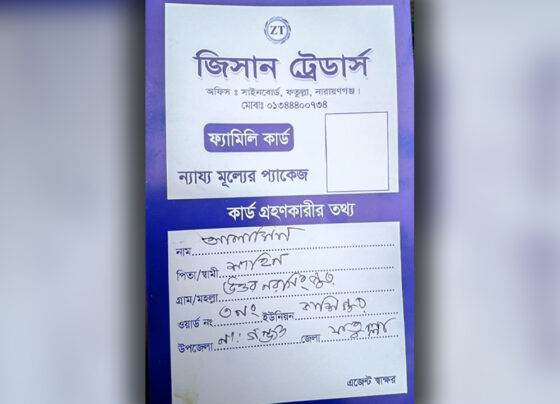 ZT
জিসান ট্রেডার্স
অফিস : সাইনবোর্ড, ফতুল্লা, নারায়ণগঞ্জ।
মোবাঃ ০১৩৪৪৪০০৭৩৪
ফ্যামিলি কার্ড
ন্যায্য মূল্যের প্যাকেজ
কার্ড গ্রহণকারীর তথ্য
নাম
পিতা/স্বামী
গ্রাম/মহল্লা উত্তর নরসিংপুর
ওয়ার্ড নং ৩নং ইউনিয়ন কাশিপুর
উপজেলা না: গঞ্জ জেলা ফতুল্লা
এজেন্ট স্বাক্ষর